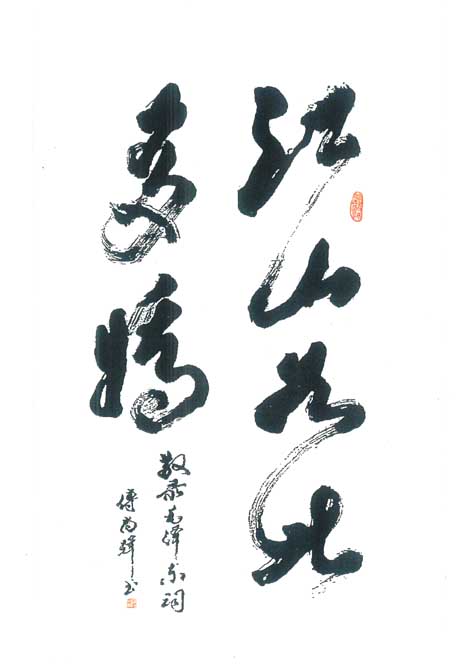 江山如此
多娇
敬录毛泽东词
傅尚书